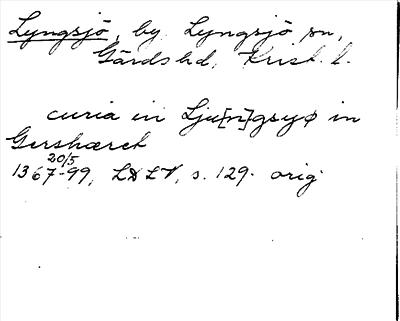 Lyngsjö, by, Lyngsjö sn,
Gärds hd, Krist. l.
curia in Lju[n]gsyø in
Gershæret
20/5
1367-99, LDLV, s. 129. orig